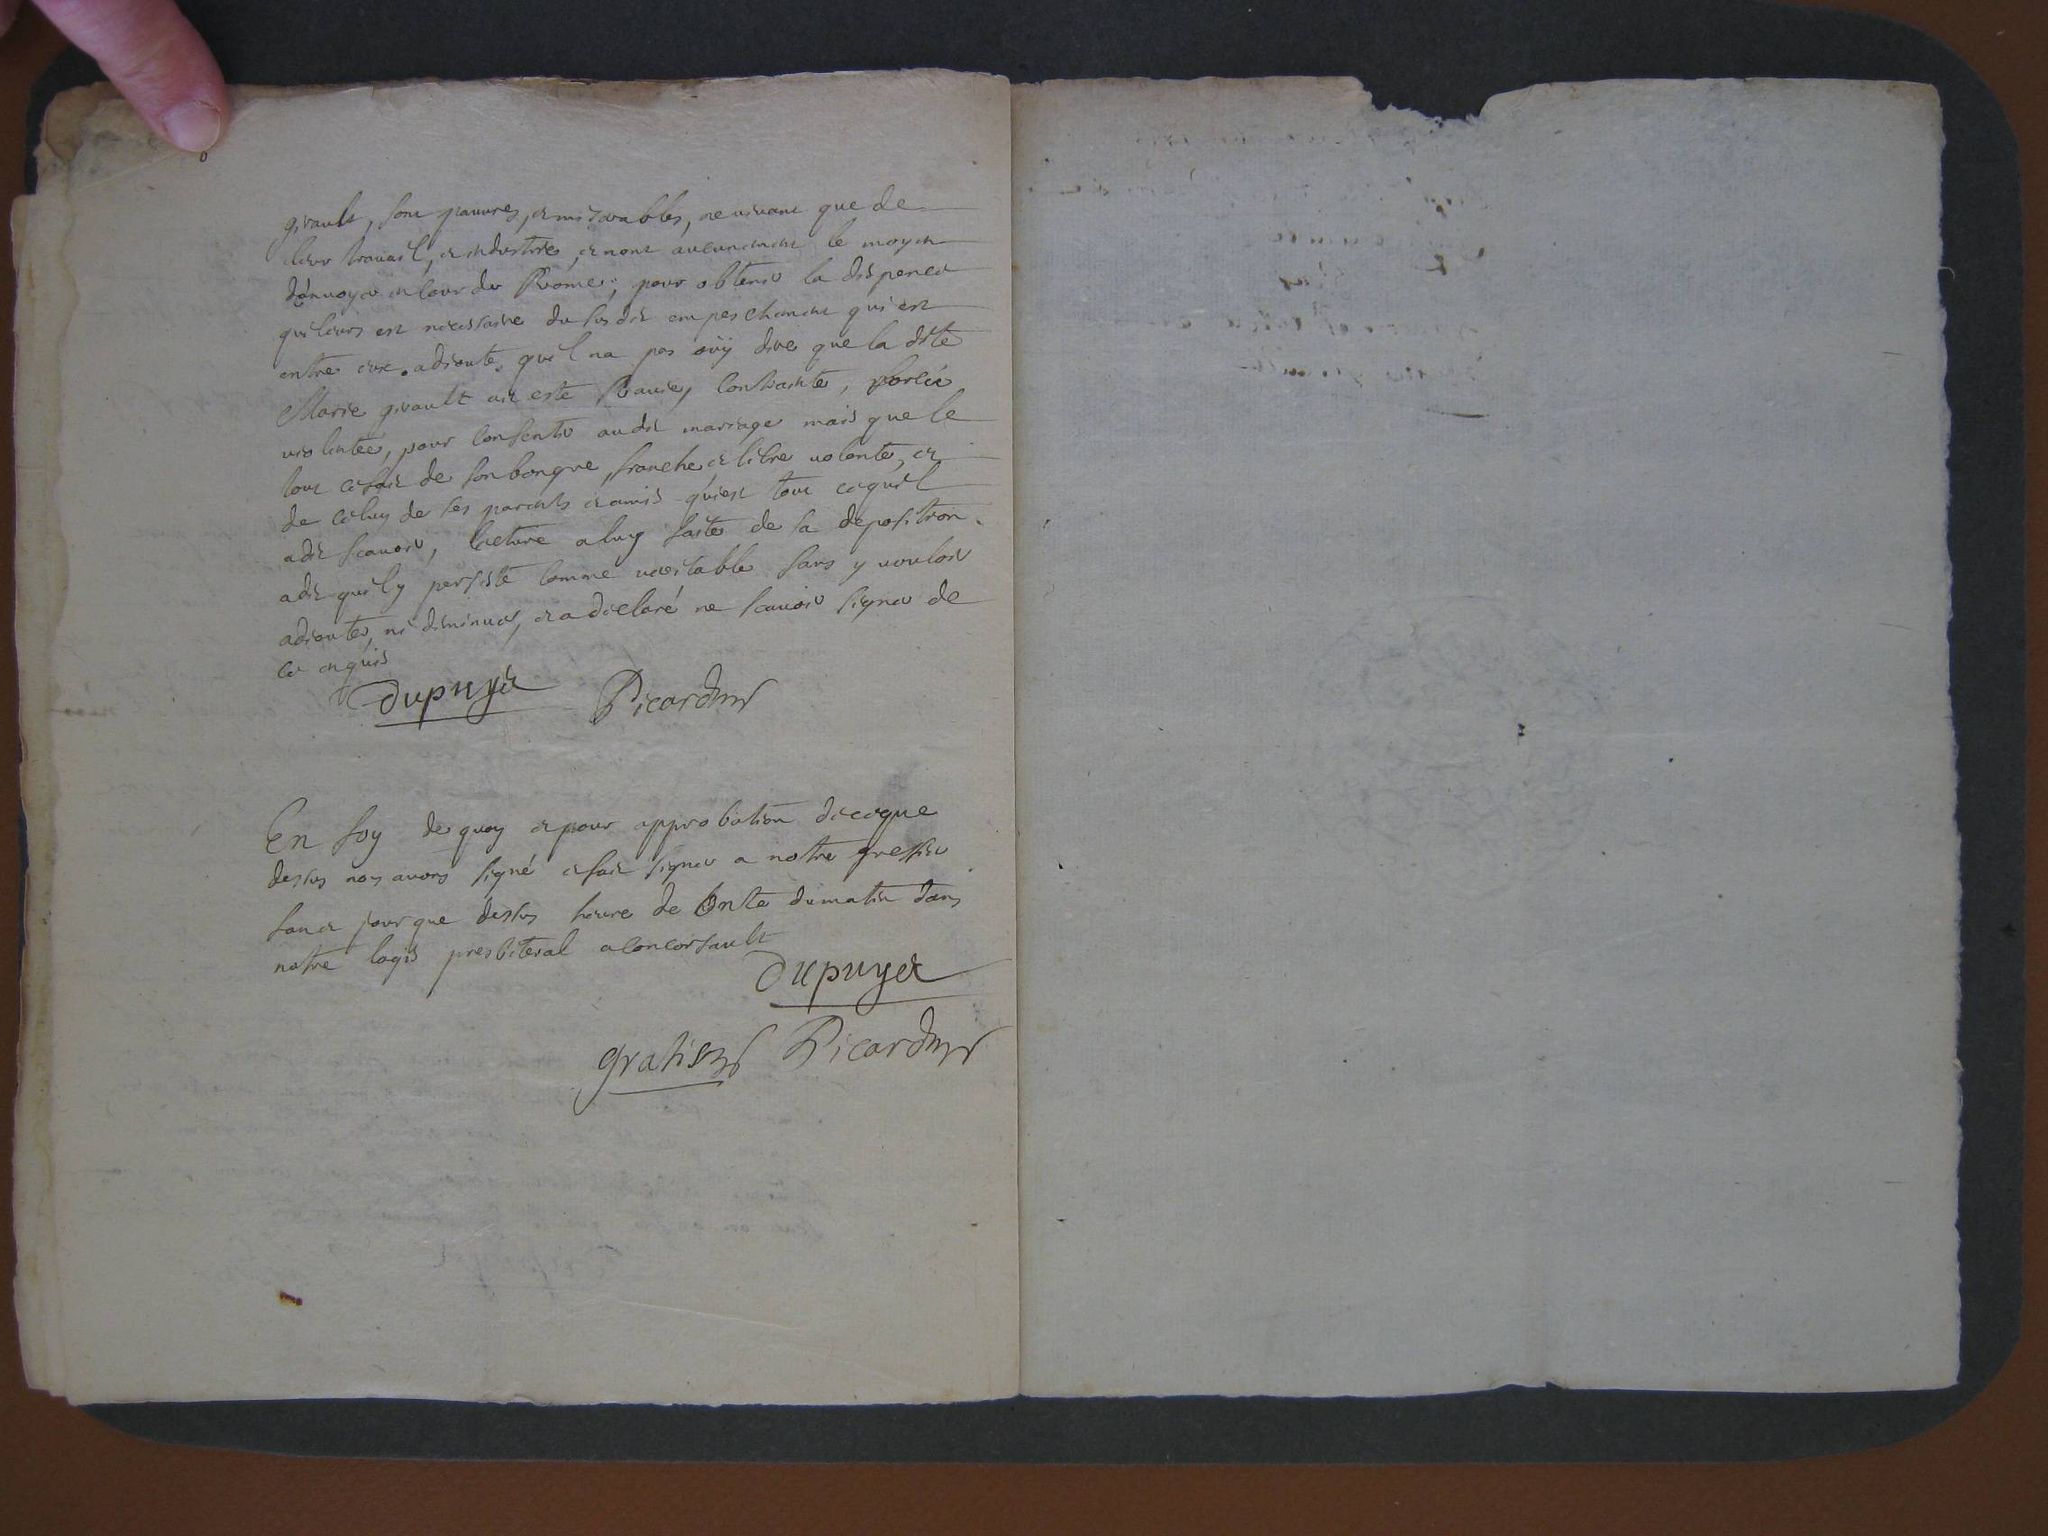 girault, sont pauures, et miserables, ne viuant que de
leur trauail, et industrie, et nont aucunement le moyen
d'enuoyer en cour de Rome, pour obtenir la dispence
qui leurs est necessaire du susdit empeschement qui est
entre eux. adioute quil na pas oüy dire que la dite
Marie girault ait este Rauie, contrainte, forcée
violentée, pour consentir audit mariage mais que le
tout ce fait de son bon gre, franche et libre volonte, et
de celuy de ses parents et amis qui est tout ce quil
a dit scauoir, lecture a luy faite de sa deposition
a dit quil y persiste comme veritable sans y vouloir
adiouter, ni diminuer, et a declaré ne scauoir signer de
ce enquis
Dupuyet Picard
En foy de quoy et pour approbation de ce que
dessus nous auons signé et fait signer a notre greffier
jour que dessus heure de Onze du matin dans
notre logis presbiteral a Concorsault
Dupuyet
gratis Picard